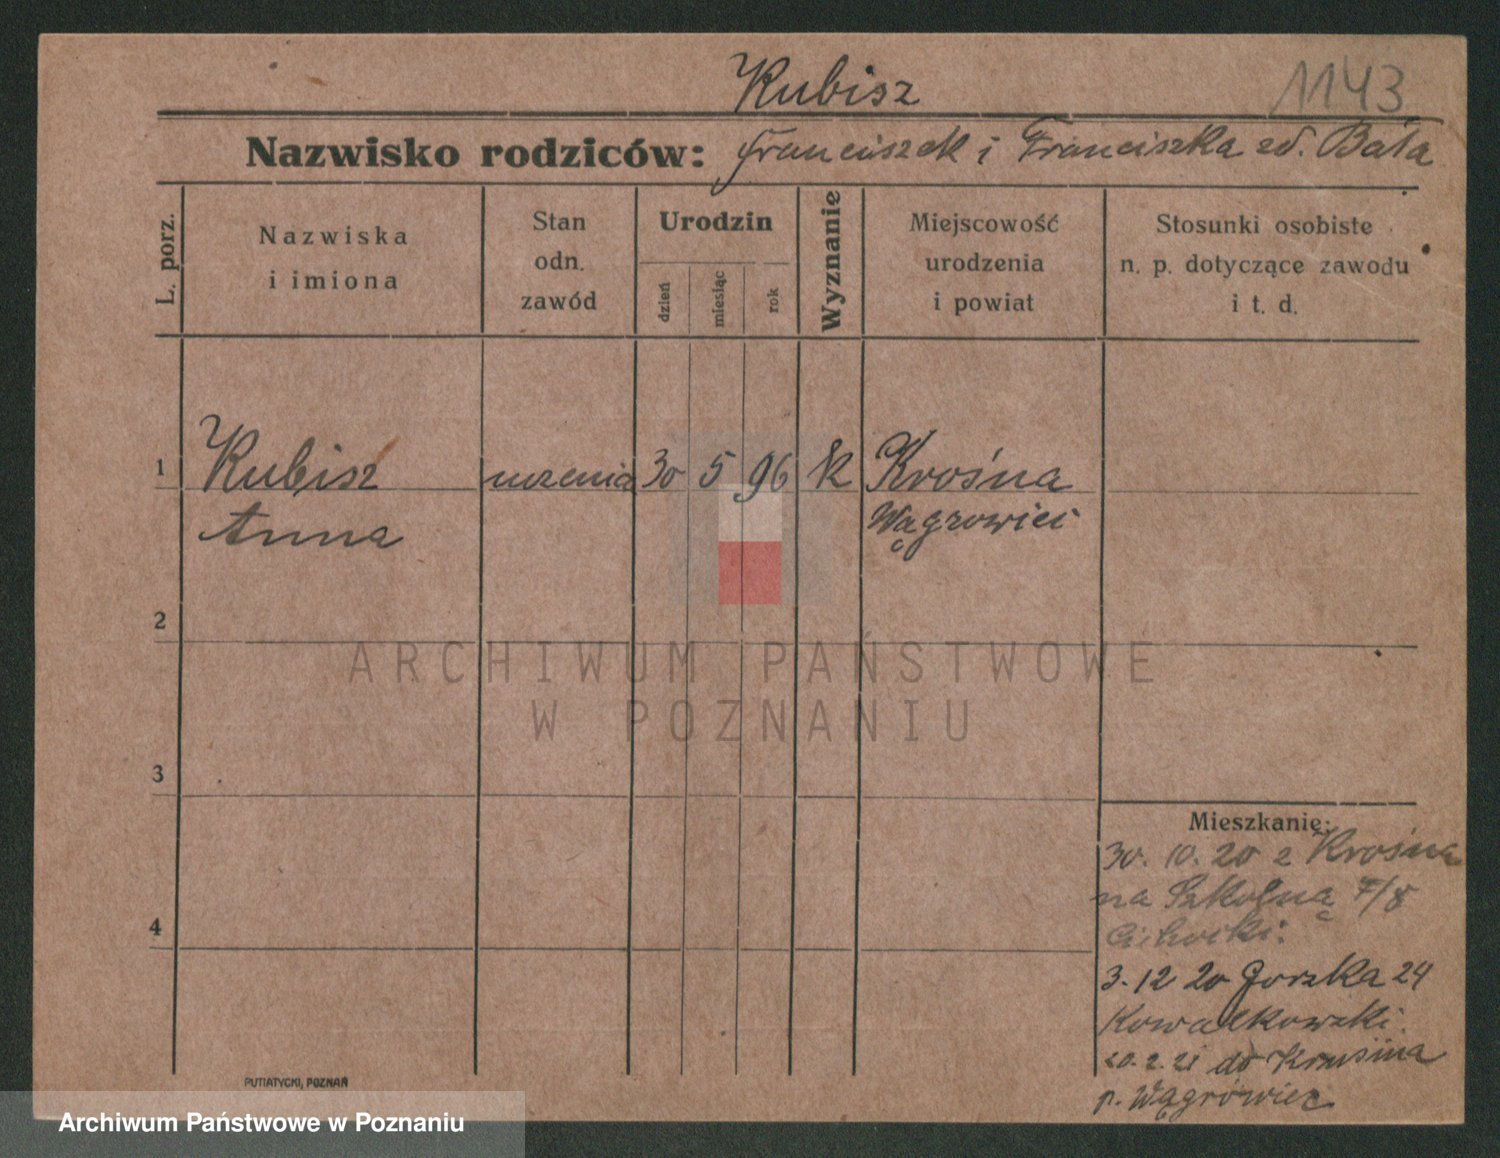 Kubisz
1143
Nazwisko rodziców: Franciszek i Franciszka zd. Bała
L. porz.
Nazwiska
i imiona
Stan
odn.
zawód
Urodzin
dzień
miesiąc
rok
Wyznanie
Miejscowość
urodzenia
i powiat
Stosunki osobiste
n. p. dotyczące zawodu
i t. d.
1 Kubisz uczenia 30 5 96 k Krośna
Anna Wągrowiec
2
ARCHIWUM PAŃSTWOWE
W POZNANIU
3
Mieszkanie:
30. 10. 20 z Krośna
na Szkolną 7/8
4
3. 12 20 Gorzka 24
Kowalkowski.
20. 2. 21 do
p. Wągrówiec
PUTIATYCKI, POZNAŃ
Archiwum Państwowe w Poznaniu